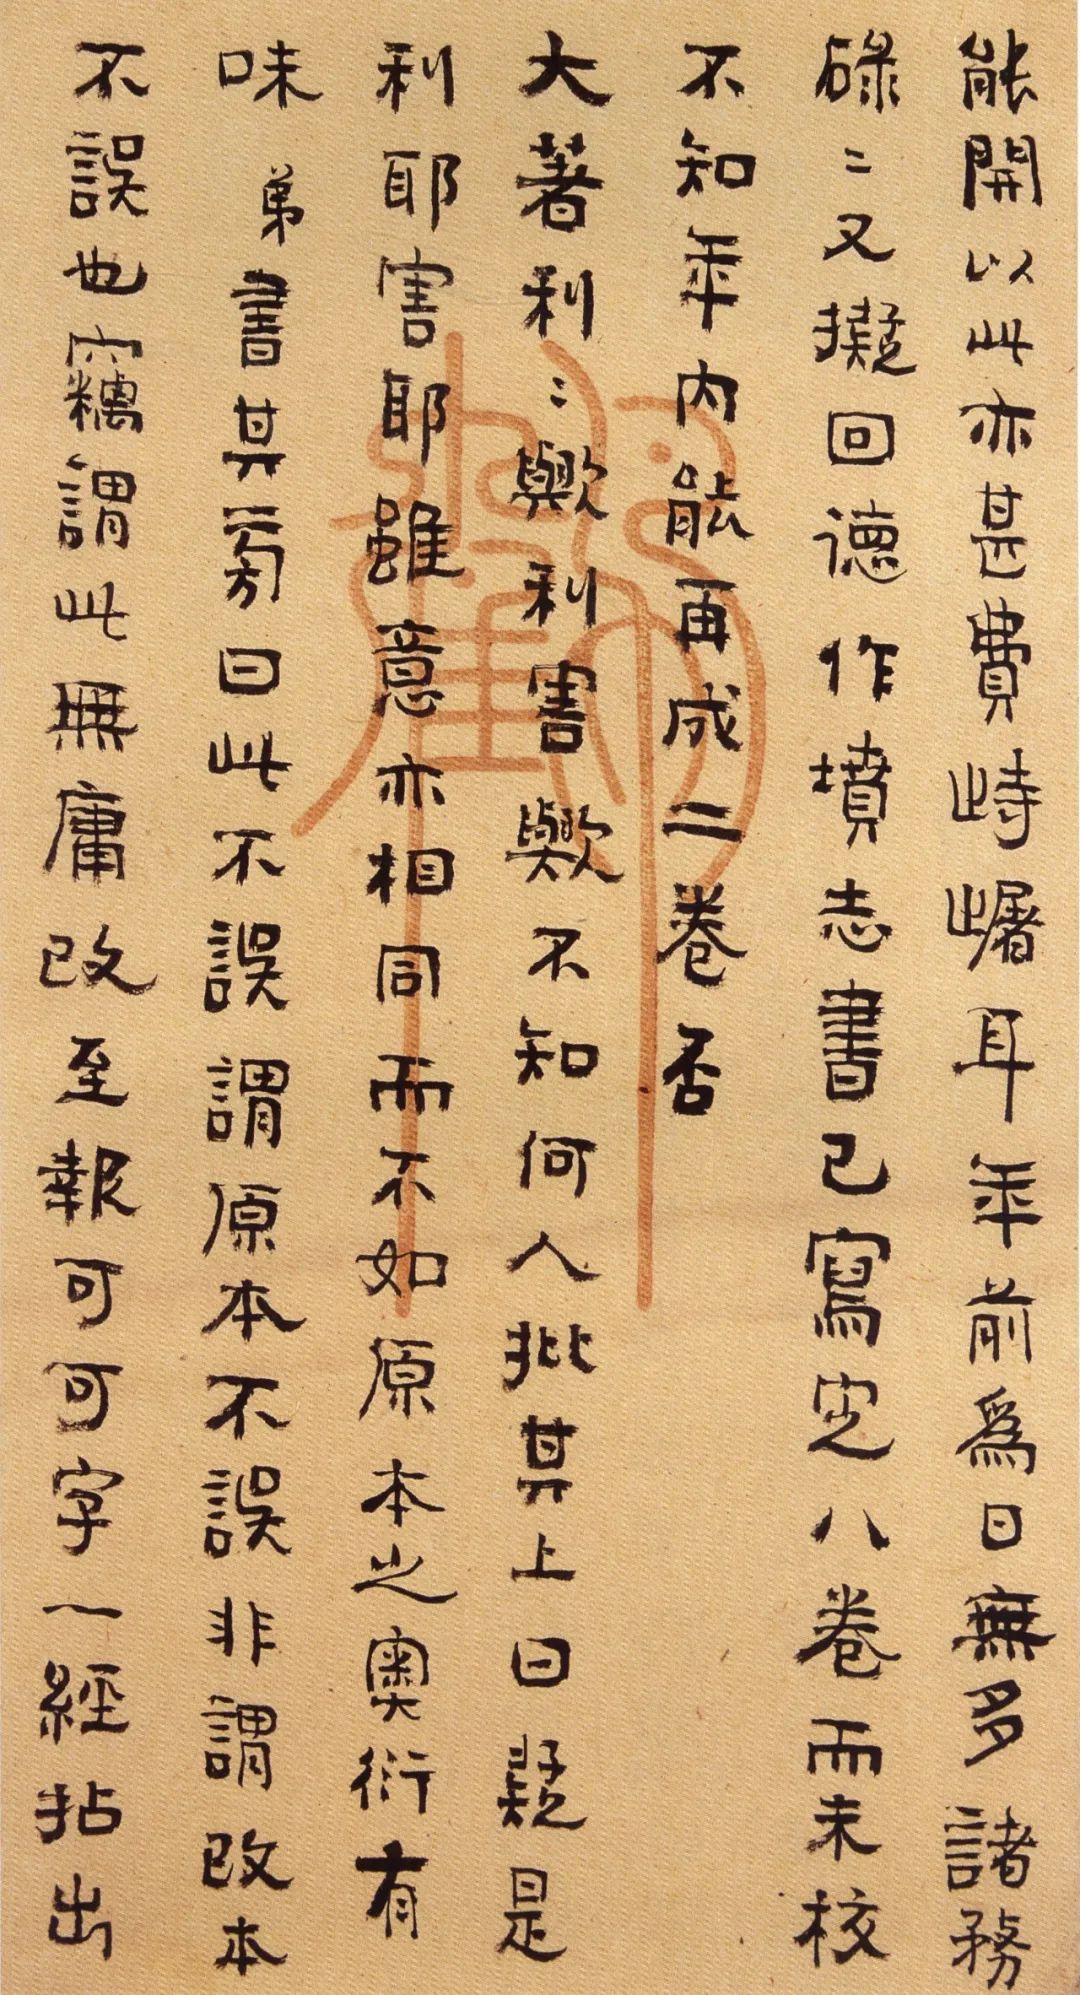 能開以此亦甚費峙𡺚耳年前為日無多諸務
碌〻又擬回德作墳志書已寫定八卷而未校
不知年內能再成二卷否
大著利〻歟利害歟不知何人批其上曰疑是
利耶害耶雖意亦相同而不如原本之奧衍有
味弟書其旁曰此不誤謂原本不誤非謂改本
不誤也竊謂此無庸改至報可可字一經拈出